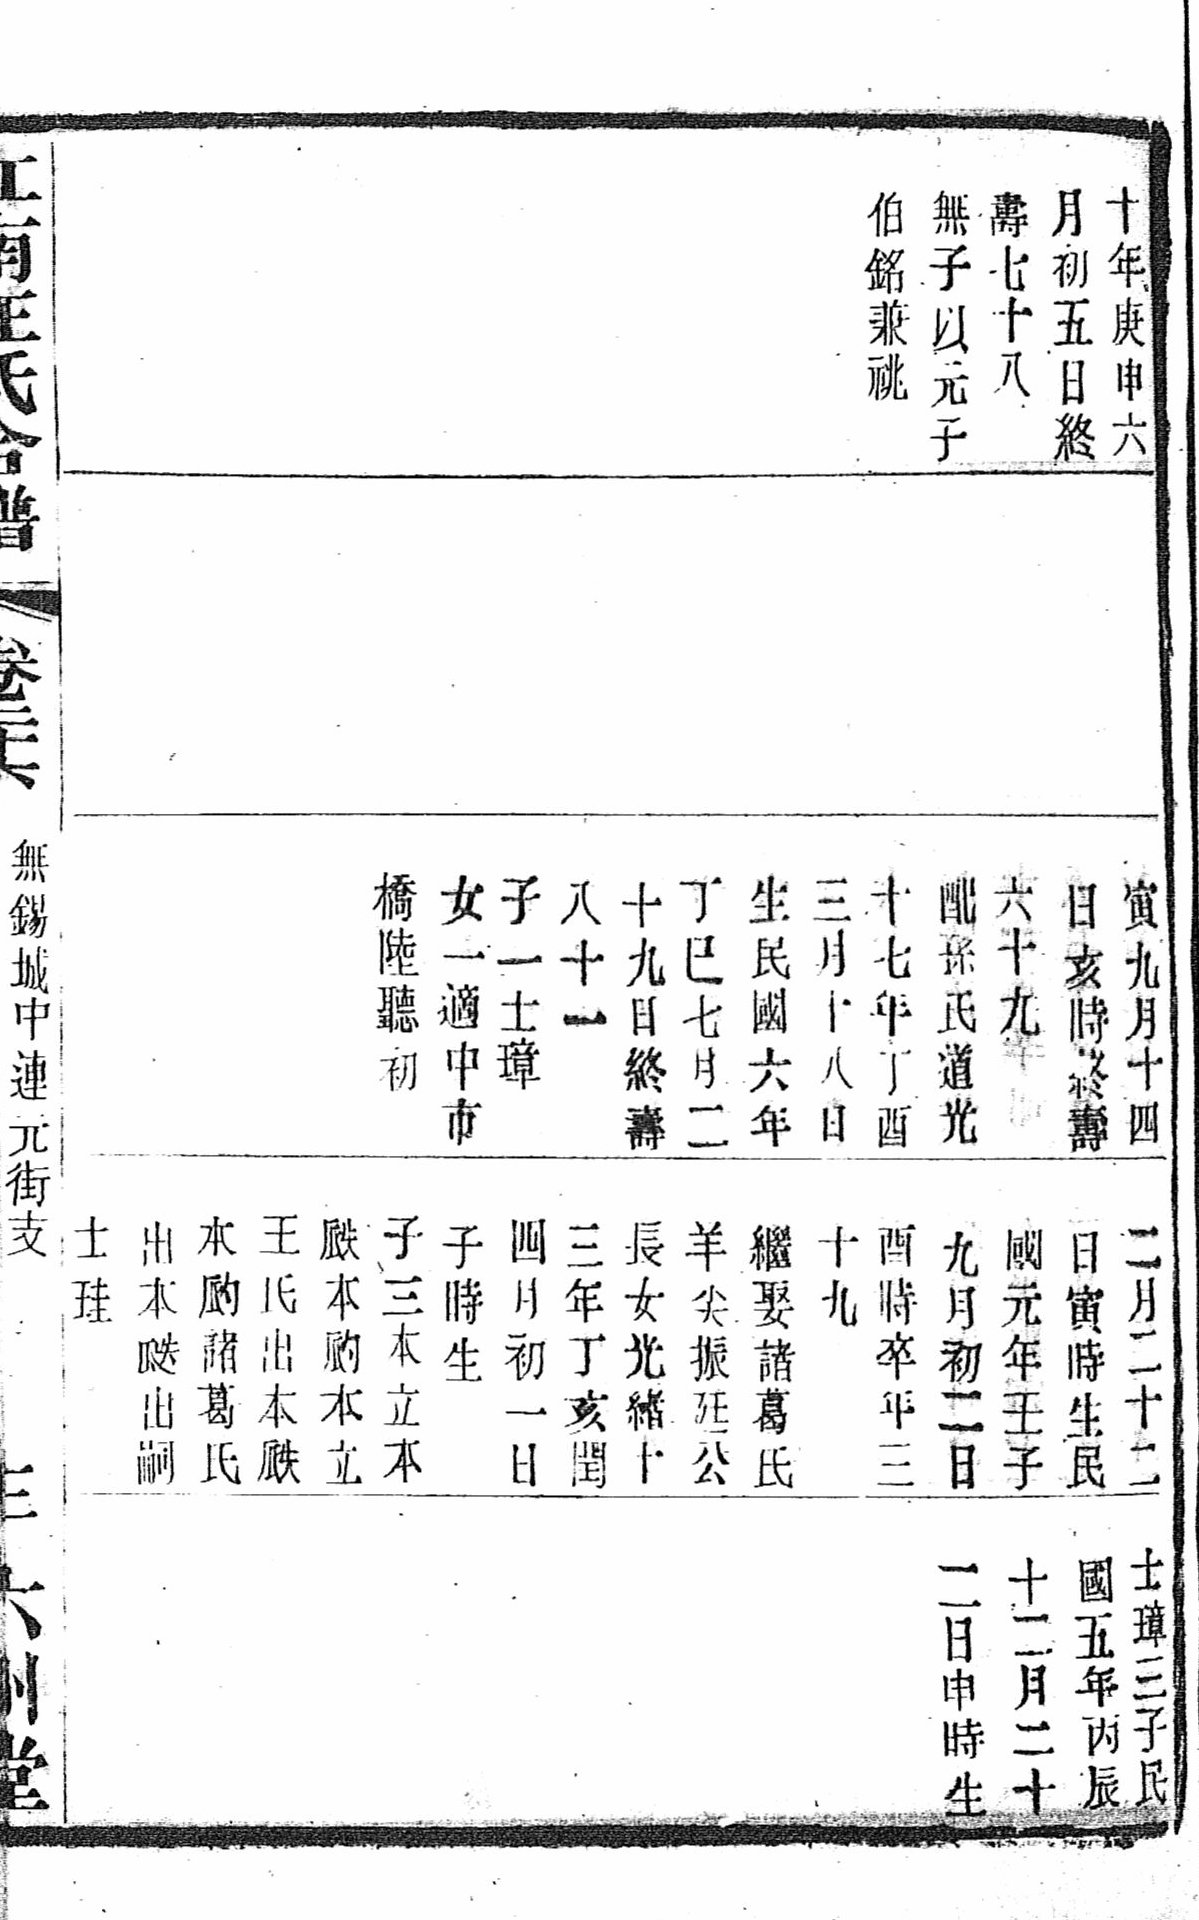 十年庚申六
月初五日終
壽七十八
無子以元子
伯銘兼祧
寅九月十四
日亥時終壽
六十九
配孫氏道光
十七年丁酉
三月十八日
生民國六年
丁巳七月二
十九日終壽
八十一
子一士璋
女一適中市
橋陸聽初
二月二十二
日寅時生民
國元年壬子
九月初二日
酉時卒年三
十九
繼娶諸葛氏
羊尖振廷公
長女光緒十
三年丁亥閏
四月初一日
子時生
子三本立本
本本立
王氏出本
本諸葛氏
出本出嗣
士珪
士璋三子民
國五年丙辰
十二月二十
二日申時生
江南汪氏合譜
卷二六
無錫城中連元街支
六州堂